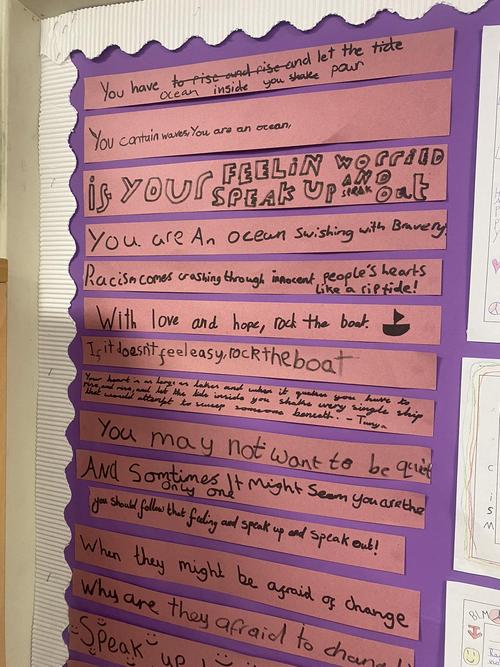 You have to rise and rise and let the tide
ocean inside you shake pour
You contain waves, You are an ocean,
is YOUR FEELIN WORRIED
SPEAK UP AND SPEAK out
You are An ocean swishing with Bravery
Racism comes crashing through innocent people's hearts
like a riptide!
With love and hope, rock the boat.
If it doesn't feel easy, rock the boat
Your heart is as large as lakes and when it quakes you have to
rise and rise and let the tide inside you shake every single ship
that would attempt to sweep someone beneath. -
You may not want to be quiet
And Somtimes It Might Seem you are the
only one
you should follow that feeling and speak up and speak out!
When they might be afraid of change
Why are they afraid to change
Speak up
BLM